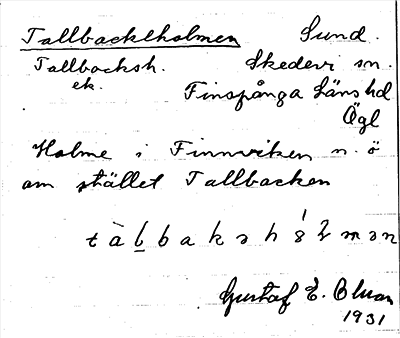 Tallbackholmen Sund.
Tallbacksh. Skedevi sn.
ek. Finspånga Läns hd
Ögl
Holme i Finnviken n. ö
om stället Tallbacken
Gustaf E.
1931